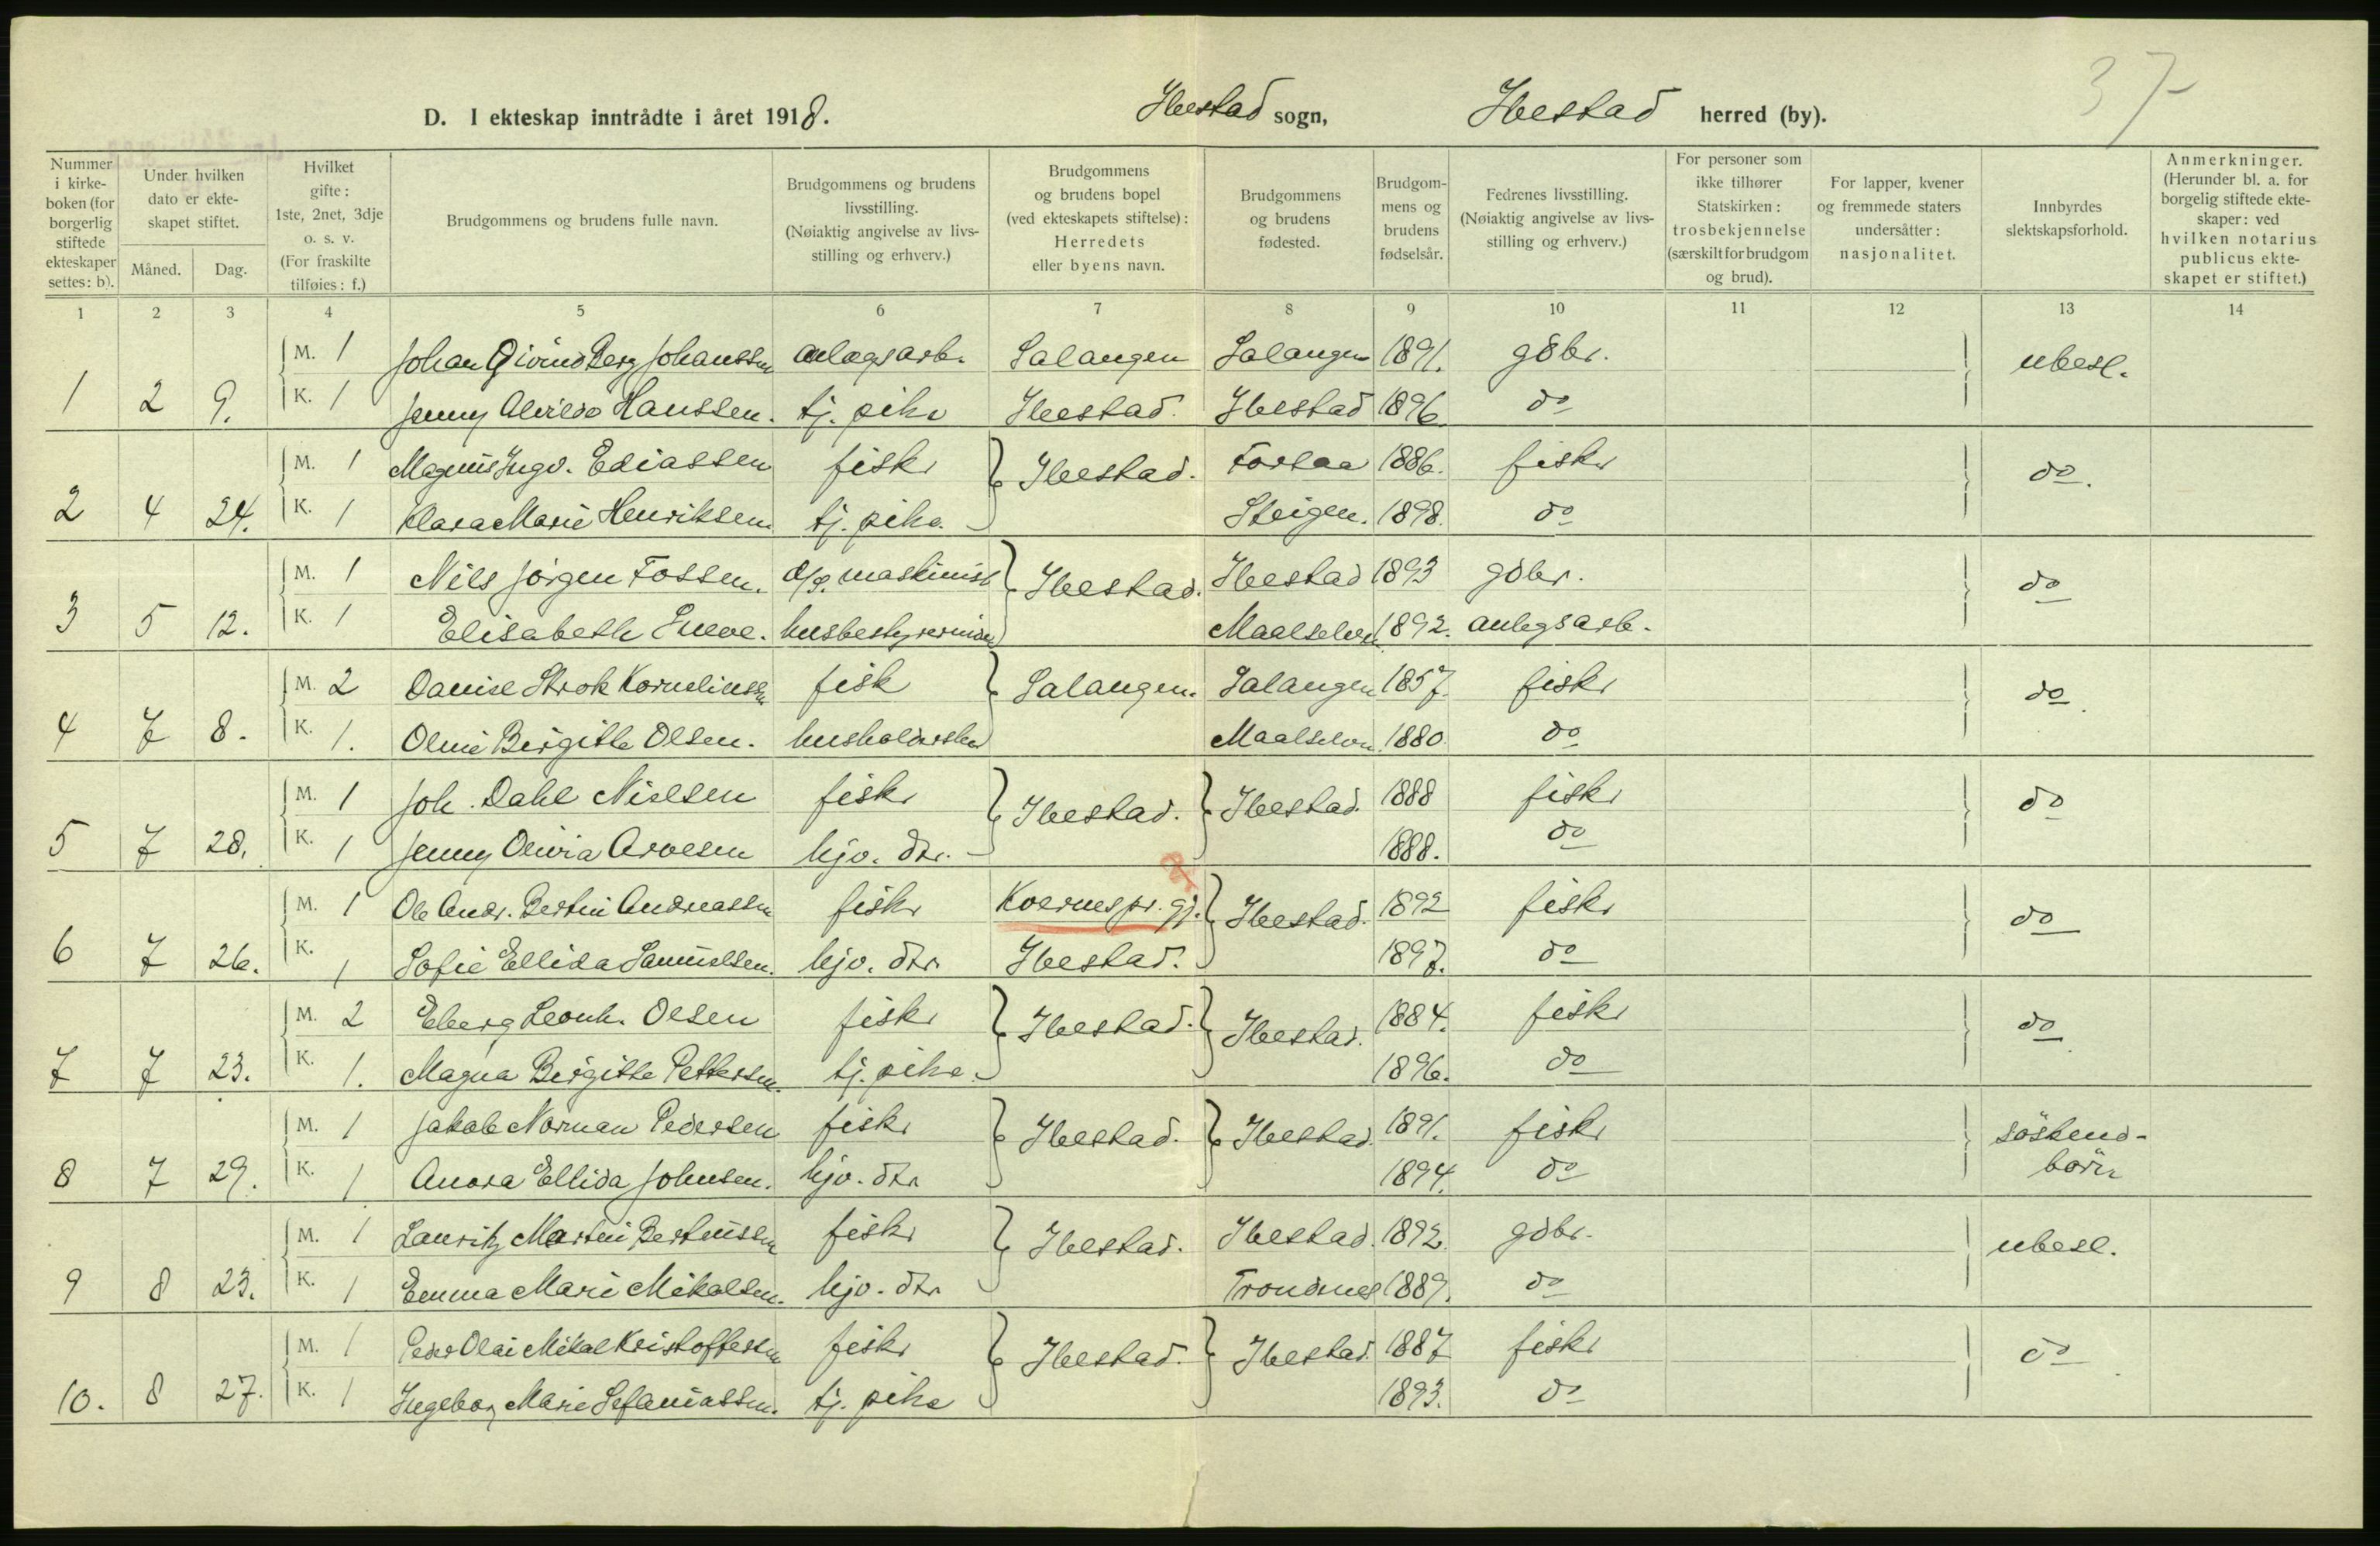 37
D. I ekteskap inntrådte i året 1918. Ibestad sogn, Ibestad herred (by).
Nummer i kirkeboken (for borgerlig stiftede ekteskaper settes: b).
Under hvilken dato er ekteskapet stiftet.
Måned. Dag.
Hvilket gifte: 1ste, 2net, 3dje o. s. v. (For fraskilte tilføies: f.)
Brudgommens og brudens fulle navn.
Brudgommens og brudens livsstilling. (Nøiaktig angivelse av livsstilling og erhverv.)
Brudgommens og brudens bopel (ved ekteskapets stiftelse): Herredets eller byens navn.
Brudgommens og brudens fødested.
Brudgommens og brudens fødselsår.
Fedrenes livsstilling. (Nøiaktig angivelse av livsstilling og erhverv.)
For personer som ikke tilhører Statskirken: trosbekjennelse (særskilt for brudgom og brud).
For lapper, kvener og fremmede staters undersåtter: nasjonalitet.
Innbyrdes slektskapsforhold.
Anmerkninger. (Herunder bl. a. for borgelig stiftede ekteskaper: ved hvilken notarius publicus ekteskapet er stiftet.)
1 2 3 4 5 6 7 8 9 10 11 12 13 14
M. 1 Johan Øivind Berg Johanssen anlægsarb. Salangen Salangen 1891. gdbr. ubesl.
1 2 9. K. 1 Jenny Alvilde Hanssen. tj. pike Ibestad. Ibestad 1896 do
M. 1 Magnus Ingv. Ediassen fisker Ibestad. 1886. fisker do.
2 4 24. K. 1 Klara Marie Henriksen. tj. pike. Steigen. 1898. do
M. 1 Nils Jørgen Fossen. maskinist Ibestad. Ibestad 1893 gdbr. do
3 5 12. K. 1 Elisabeth husbestyrerinde Maalselven 1892. anlegsarb.
M. 2 Daniel Strok Korneliussen fisk Salangen. Salangen 1857. fisker do
4 7 8. K. 1. Oline Birgitte Olsen. husholderske Maalselven 1880. do
M. 1 Joh. Dahl Nielsen fisker Ibestad. Ibestad. 1888 fisker do
5 7 28. K. 1 Jenny Olivia Arvesen hjv. dtr. 1888. do
M. 1 Ole Andr. Bertin Andreassen fisker Kvernes pr. gj. Ibestad. 1892 fisker do
6 7 26. K. 1 Sofie Ellida Samuelsen. hjv. dtr. Ibestad. 1897. do
M. 2 Eberg Leonh. Olsen fisker Ibestad. Ibestad. 1884. fisker do
7 7 23. K. 1. Magna Birgitte Pettersen. tj. pike. 1896. do
M. 1 Jakob Norman Pedersen fisker Ibestad. Ibestad. 1891. fisker søskend-
8 7 29. K. 1 Anora Ellida Johnsen. hjv. dtr. 1894. do børn
M. 1 Lauritz Martin Bertinussen fisker Ibestad. Ibestad. 1892. gdbr. ubesl.
9 8 23. K. 1 Emma Marie Mikalsen. hjv. dtr. Trondnes 1889. do
M. 1 Peder Olai Mikal Kristoffersen fisker Ibestad. Ibestad. 1887 fisker do
10. 8 27. K. 1 Ingeborg Marie Sefaniassen. tj. pike 1893. do